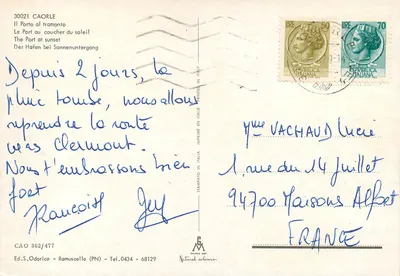 30021 CAORLE
Il Porto al tramonto
Le Port au coucher du soleil
The Port at sunset
Der Hafen bei Sonnenuntergang
Depuis 2 jours, la
pluie tombe, nous allons
reprendre la route
vers Clermont.
Nous t'embrassons bien
fort
Francoise
CAO 362/477
Ed. S. Odorico - Ramuscello (PN) - Tel. 0434 - 68129
50
70
Mme VACHAUD Lucie
1, rue du 14 Juillet
94700 Maisons Alfort
FRANCE